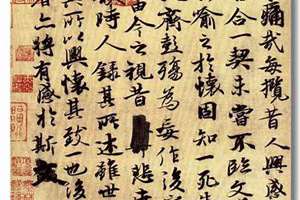 痛哉每攬昔人興感
合一契未嘗不臨文
喻之於懷固知一死生
齊彭殤為妄作後
由今之視昔悲夫
時人錄其所述雖世
所以興懷其致一也後
者亦將有感於斯文